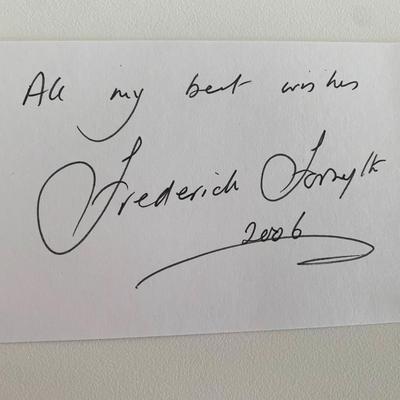 All my best wishes
Frederick Forsyth
2006